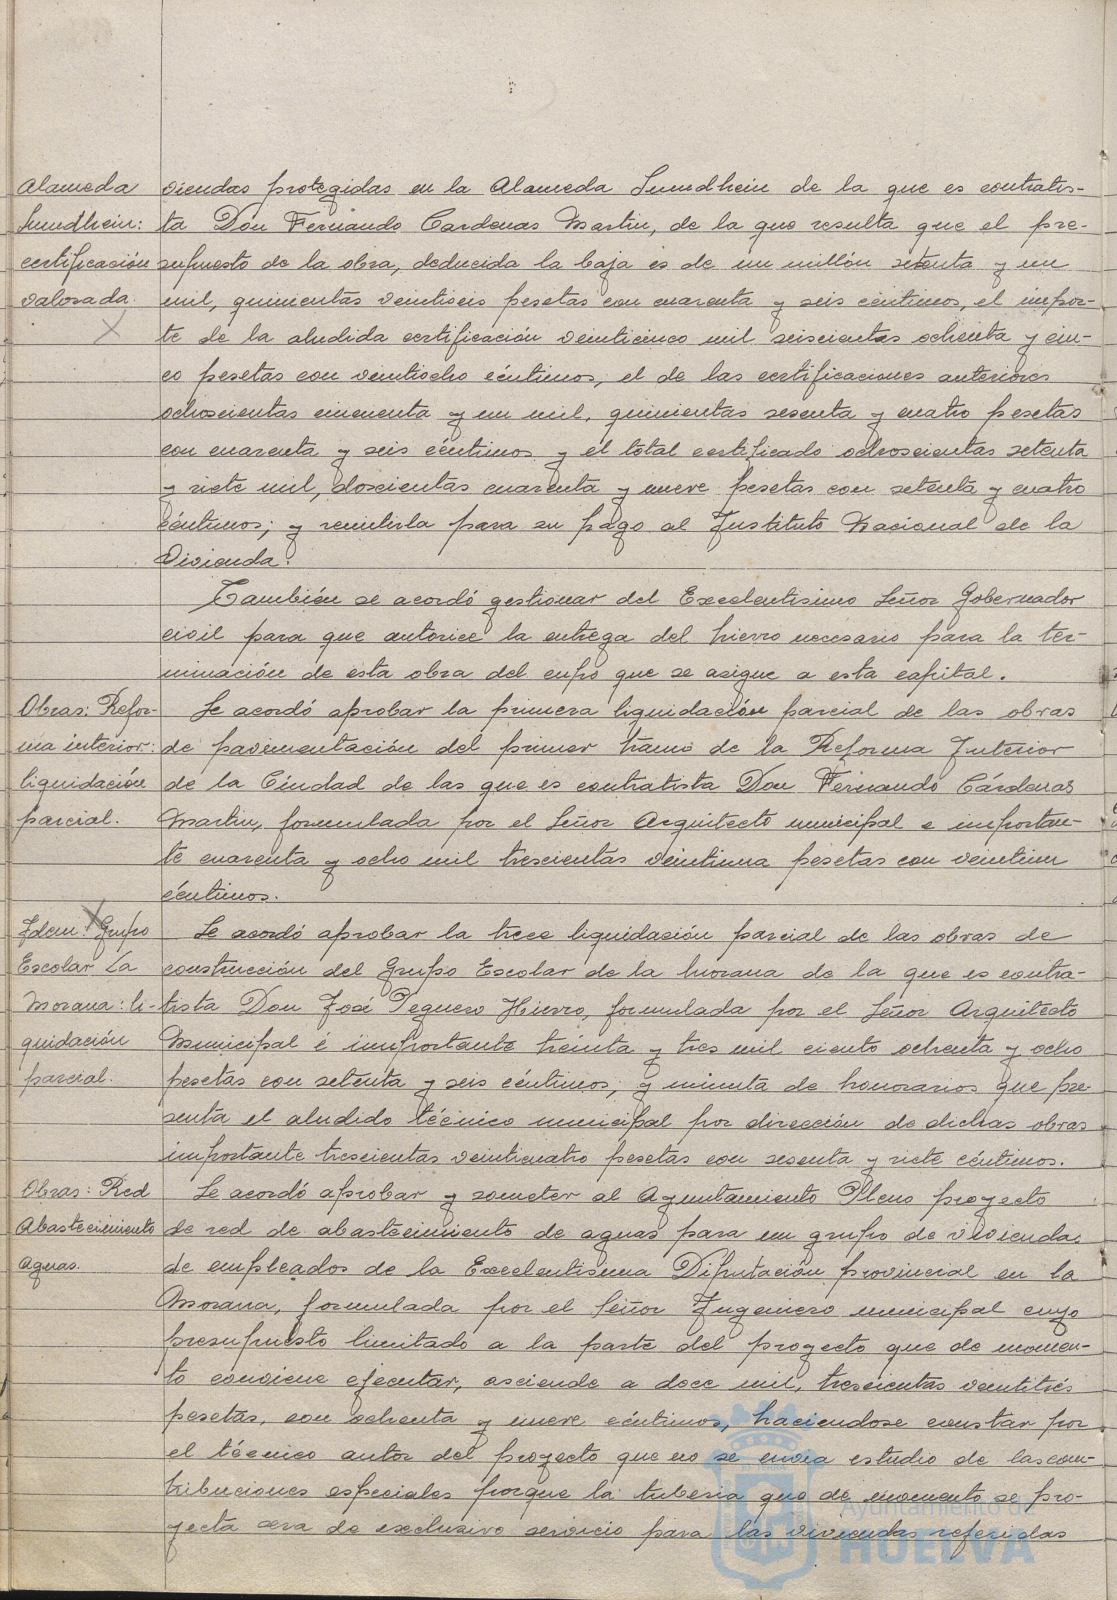 Alameda
Sundhein:
certificación
valorada.
viendas protegidas en la Alameda Sundhein de la que es contratis-
ta Don Fernando Cardenas Martin, de la que resulta que el pre-
supuesto de la obra, deducida la baja es de un millón setenta y un
mil, quinientas veintiseis pesetas con cuarenta y seis céntimos, el impor-
te de la aludida certificación veinticinco mil seiscientas ochenta y cin-
co pesetas con veintiocho céntimos, el de las certificaciones anteriores
ochoscientas cincuenta y un mil, quinientas sesenta y cuatro pesetas
con cuarenta y seis céntimos y el total certificado ochoscientas setenta
y siete mil, doscientas cuarenta y nueve pesetas con setenta y cuatro
céntimos; y remitirla para su pago al Instituto Nacional de la
Vivienda.
También se acordó gestionar del Excelentisimo Señor Gobernador
civil para que autorice la entrega del hierro necesario para la ter-
minación de esta obra del cupo que se asigue a esta capital.
Obras: Refor-
ma interior:
liquidación
parcial.
Se acordó aprobar la primera liquidación parcial de las obras
de pavimentación del primer tramo de la Reforma Interior
de la Ciudad de las que es contratista Don Fernando Cárdenas
Martin, formulada por el Señor Arquitecto municipal e importan-
te cuarenta y ocho mil trescientas veintiuna pesetas con veintiun
céntimos.
Idem: Grupo
Escolar La
Morana: li-
quidación
parcial.
Se acordó aprobar la trece liquidación parcial de las obras de
construcción del Grupo Escolar de la Morana de la que es contra-
tista Don José Peguero Hierro, formulada por el Señor Arquitecto
Municipal é importante treinta y tres mil ciento ochenta y ocho
pesetas con setenta y seis céntimos, y minuta de honorarios que pre-
senta el aludido técnico municipal por dirección de dichas obras
importante trescientas veinticuatro pesetas con sesenta y siete céntimos.
Obras: Red
Abastecimiento
aguas.
Se acordó aprobar y someter al Ayuntamiento Pleno proyecto
de red de abastecimiento de aguas para un grupo de viviendas
de empleados de la Excelentisima Diputación provincial en la
Morana, formulada por el Señor Ingeniero municipal cuyo
presupuesto limitado a la parte del proyecto que de momen-
to conviene ejecutar, asciende a doce mil, trescientas veintitrés
pesetas, con ochenta y nueve céntimos, haciendose constar por
el técnico autor del proyecto que no se envia estudio de las con-
tribuciones especiales porque la tuberia que de momento se pro-
yecta sera de exclusivo servicio para las viviendas referidas
Ayuntamiento de
HUELVA